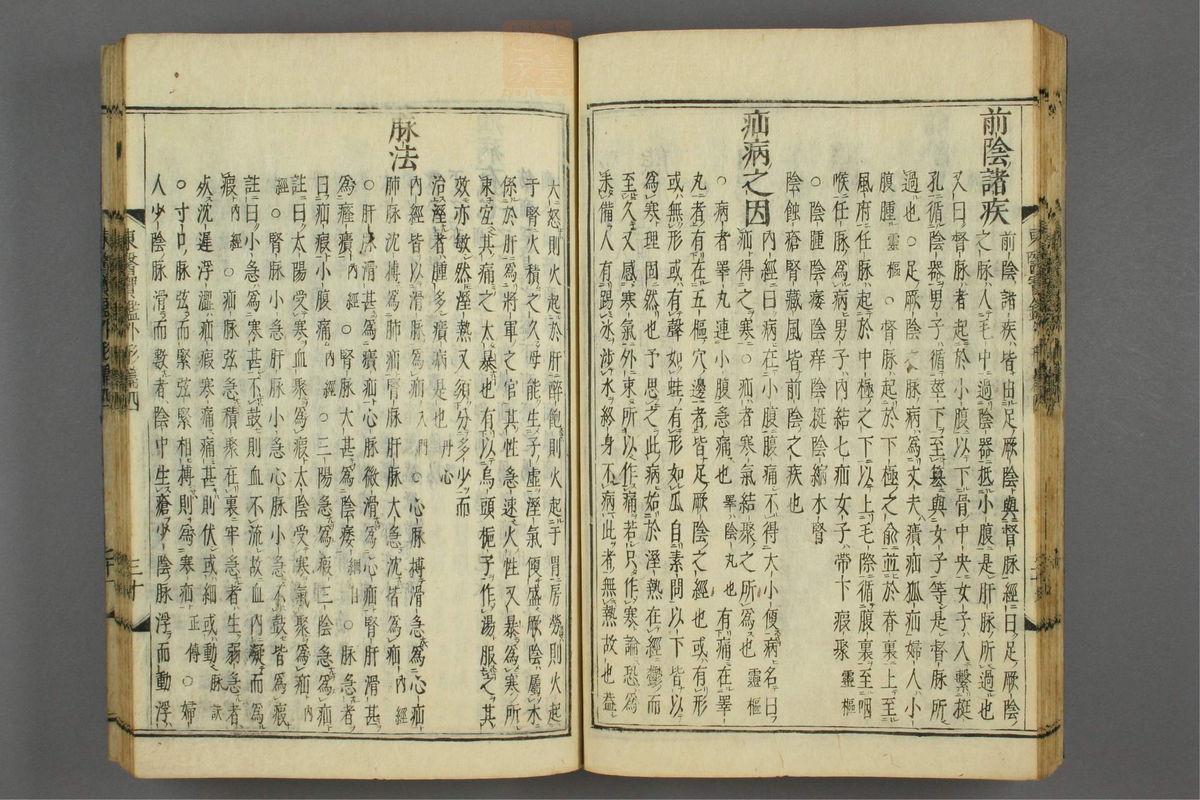 前陰諸疾
前陰諸疾皆出足厥陰與督脉經曰足厥陰
之脉入毛中過陰器抵小腹是肝脉所過也
又曰督脉者起於小腹以下骨中央女子入繫挺
孔循陰器男子循莖下至篡與女子等是督脉所
過也○足厥陰之脉病為丈夫㿉疝狐疝婦人小
腹腫靈樞○督脉起於下極之兪並於脊裏上至
風府任脉起於中極之下以上毛際循腹裏上至咽
喉任脉為病男子內結七疝女子帶下瘕聚靈樞
○陰腫陰痿陰痒陰挺陰縮木腎
陰蝕瘡腎藏風皆前陰之疾也
疝病之因
內經曰病在小腹腹痛不得大小便病名曰
疝得之寒○疝者寒氣結聚之所為也靈樞
○病者睪丸連小腹急痛也睪陰丸也有痛在睪
丸者有在五樞穴邊者皆足厥陰之經也或有形
或無形或有聲如蛙有形如瓜自素問以下皆以
為寒理固然也予思之此病始於溼熱在經鬱而
至久又感寒氣外束所以作痛若只作寒論恐為
未備人有踢冰涉水終身不病此者無熱故也盖
大怒則火起於肝醉飽則火起于胃房勞則火起
于腎火積之久母能生子虛溼氣便盛厥陰屬木
係於肝為將軍之官其性急速火性又暴為寒所
東宜其痛之太暴也有以烏頭梔子作湯服望之其
效亦敏然溼熱又須分多少而
治溼者腫多㿉病是也丹心
脉法
內經皆以滑脉為疝入門○心脉搏滑急為心疝
肺脉沈搏為肺疝腎脉肝脉大急沈皆為疝內經
○肝脉滑甚為㿉疝心脉微滑為心疝腎肝滑甚
為癃㿉內經○腎脉大甚為陰痿綱目○脉急者
曰疝瘕小腹痛內經○三陽急為瘕三陰急為疝
註曰太陽受寒血聚為瘕太陰受寒氣聚為疝內
經○腎脉小急肝脉小急心脉小急不鼓皆為瘕
註曰小急為寒甚不鼓則血不流故血內凝而為
瘕內經○疝脉弦急積聚在裏牢急者生弱急者
死沈遲浮濇疝瘕寒痛痛甚則伏或細或動脉訣
○寸口脉弦而緊弦緊相搏則為寒疝正傳○婦
人少陰脉滑而數者陰中生瘡少陰脉浮而動浮
東醫寶鑑外形篇四
三十